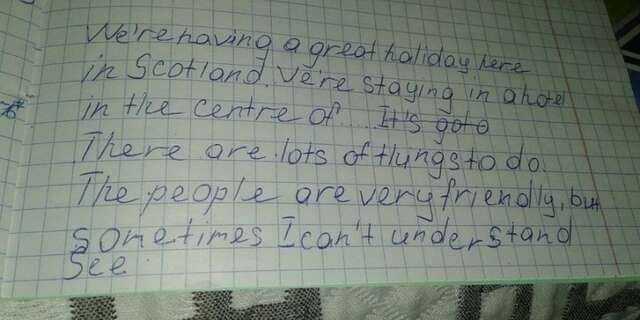 We're having a great haliday here
in Scotland. We're staying in a hotel
in the centre of..... It's goto
There are lots of things to do.
The people are very friendly, but
sometimes I can't understand
See.